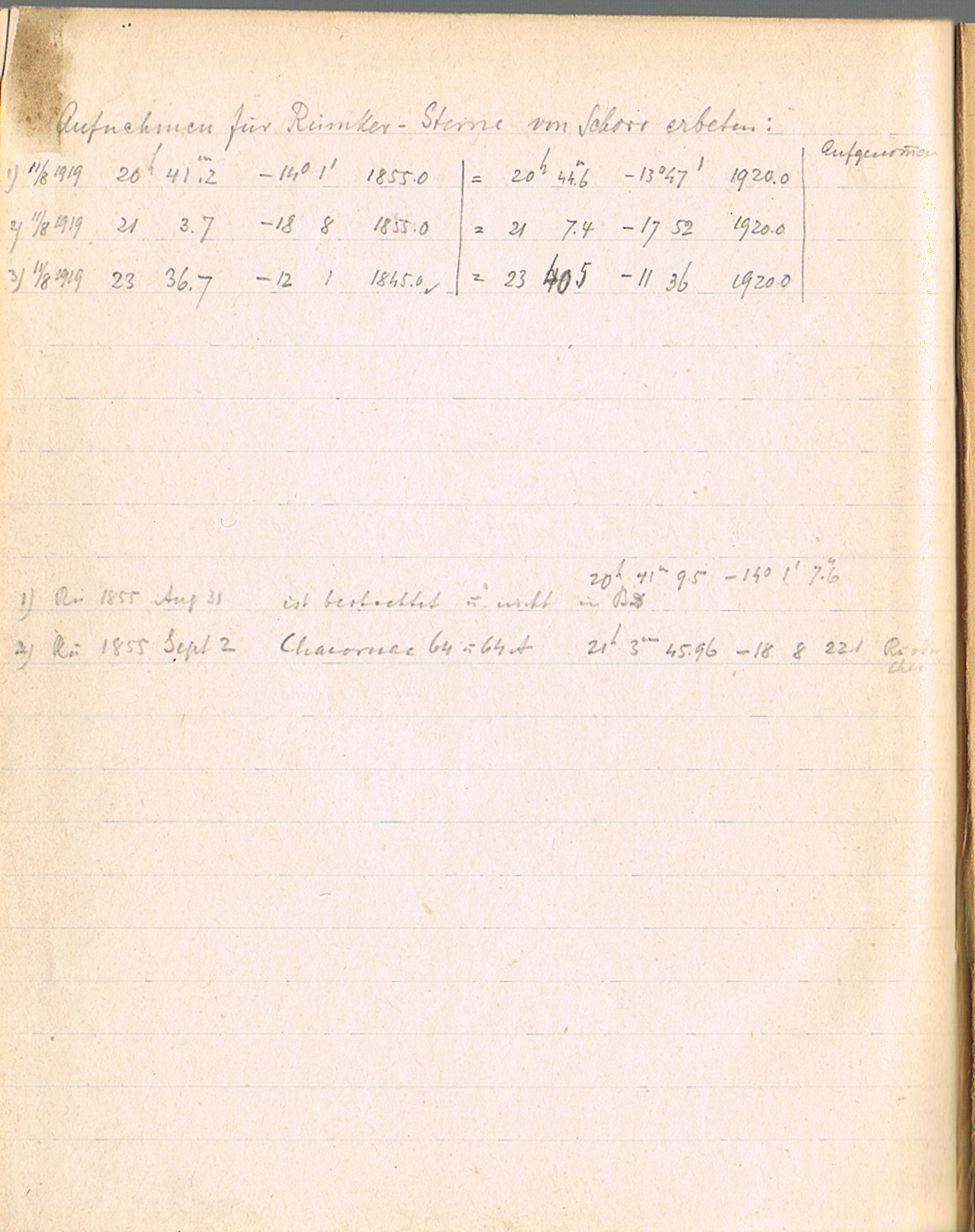 Aufnehmen für Rümker-Sterne von Schorr erbeten:
Aufgenom̄en
1) 11/8 1919 20ʰ 41ᵐ.2 -14° 1' 1855.0 = 20ʰ 44ᵐ.6 -13°47' 1920.0
2) 11/8 1919 21 3.7 -18 8 1855.0 = 21 7.4 -17 52 1920.0
3) 11/8 1919 23 36.7 -12 1 1845.0 = 23 40.5 -11 36 1920.0
20ʰ 41ᵐ 9.5 -14° 1' 7.6
1) Rü 1855 Aug 31 ist beobachtet u. nicht in BD
2) Rü 1855 Sept 2 Chacornac 64 u 64A 21ʰ 3ᵐ 45.96 -18 8 22.1 Rü oder
Chac